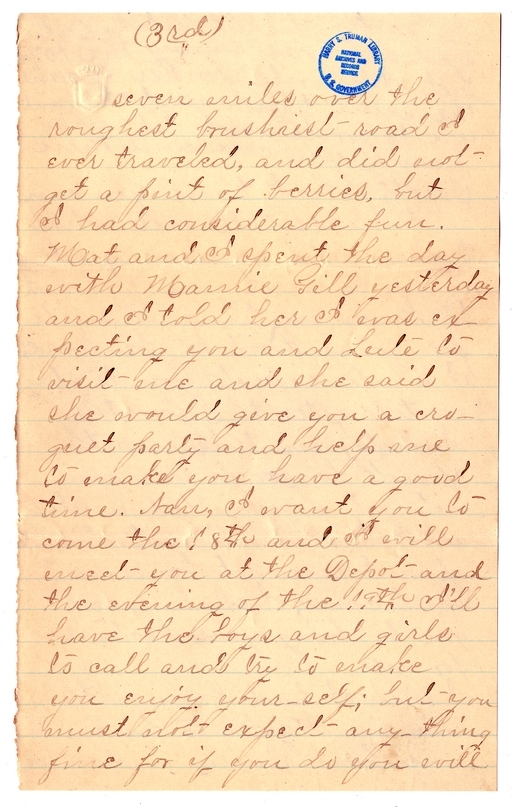 (3rd)
HARRY S. TRUMAN LIBRARY
NATIONAL
ARCHIVES AND
RECORDS
SERVICE
U.S. GOVERNMENT
seven miles over the
roughest brushiest road I
ever traveled, and did not
get a pint of berries, but
I had considerable fun.
Mat and I spent the day
with Mamie Gill yesterday
and I told her I was ex-
pecting you and Lute to
visit me and she said
she would give you a cro-
quet party and help me
to make you have a good
time. Now, I want you to
come the 18th and I will
meet you at the Depot and
the evening of the 19th I'll
have the boys and girls
to call and try to make
you enjoy your-self; but you
must not expect any-thing
fine for if you do you will